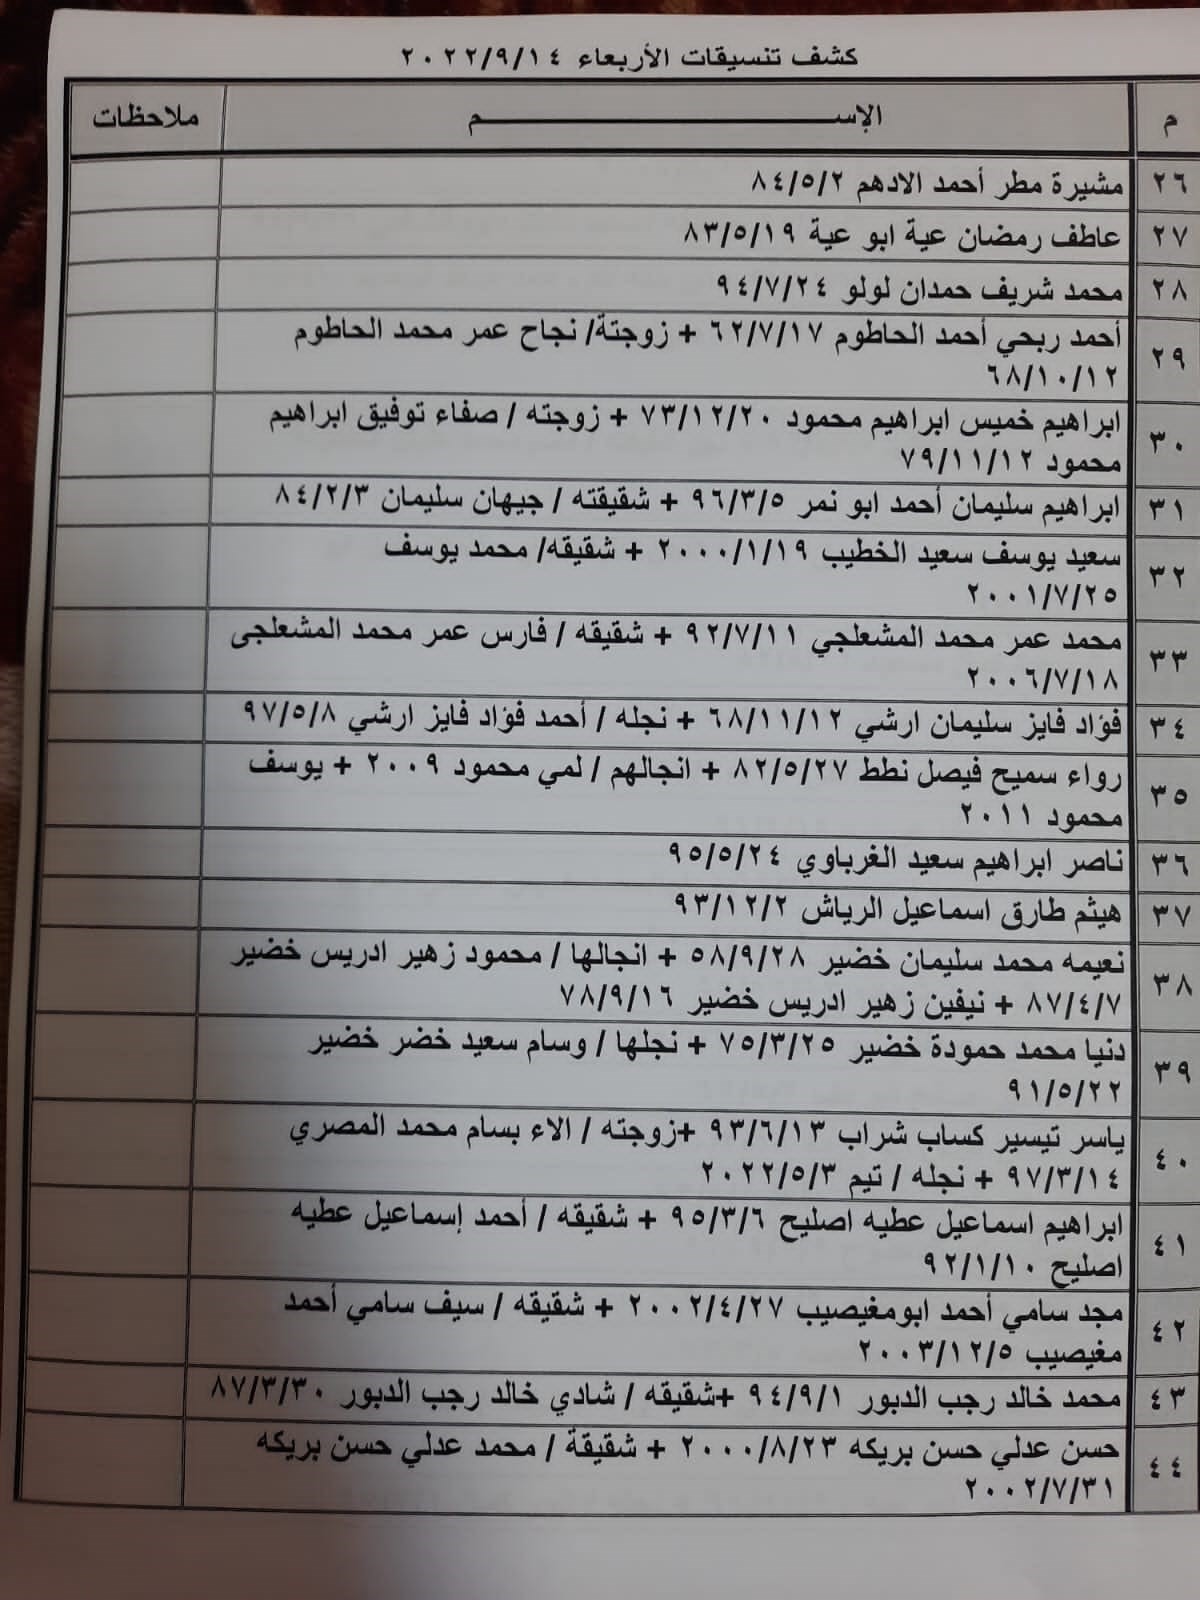 كشف تنسيقات الأربعاء ٢٠٢٢/٩/١٤
م الإســـــــــم ملاحظات
٢٦ مشيرة مطر أحمد الادهم ٨٤/٥/٢
٢٧ عاطف رمضان عية ابو عية ٨٣/٥/١٩
٢٨ محمد شريف حمدان لولو ٩٤/٧/٢٤
٢٩ أحمد ربحي أحمد الحاطوم ٦٢/٧/١٧ + زوجتة/ نجاح عمر محمد الحاطوم
٦٨/١٠/١٢
٣٠ ابراهيم خميس ابراهيم محمود ٧٣/١٢/٢٠ + زوجته / صفاء توفيق ابراهيم
محمود ٧٩/١١/١٢
٣١ ابراهيم سليمان أحمد ابو نمر ٩٦/٣/٥ + شقيقته / جيهان سليمان ٨٤/٢/٣
٣٢ سعيد يوسف سعيد الخطيب ٢٠٠٠/١/١٩ + شقيقه/ محمد يوسف
٢٠٠١/٧/٢٥
٣٣ محمد عمر محمد المشعلجي ٩٢/٧/١١ + شقيقه / فارس عمر محمد المشعلجى
٢٠٠٦/٧/١٨
٣٤ فؤاد فايز سليمان ارشي ٦٨/١١/١٢ + نجله / أحمد فؤاد فايز ارشي ٩٧/٥/٨
٣٥ رواء سميح فيصل نطط ٨٢/٥/٢٧ + انجالهم / لمي محمود ٢٠٠٩ + يوسف
محمود ٢٠١١
٣٦ ناصر ابراهيم سعيد الغرباوي ٩٥/٥/٢٤
٣٧ هيثم طارق اسماعيل الرياش ٩٣/١٢/٢
٣٨ نعيمه محمد سليمان خضير ٥٨/٩/٢٨ + انجالها / محمود زهير ادريس خضير
٨٧/٤/٧ + نيفين زهير ادريس خضير ٧٨/٩/١٦
٣٩ دنيا محمد حمودة خضير ٧٥/٣/٢٥ + نجلها / وسام سعيد خضر خضير
٩١/٥/٢٢
٤٠ ياسر تيسير كساب شراب ٩٣/٦/١٣ +زوجته / الاء بسام محمد المصري
٩٧/٣/١٤ + نجله / تيم ٢٠٢٢/٥/٣
٤١ ابراهيم اسماعيل عطيه اصليح ٩٥/٣/٦ + شقيقه / أحمد إسماعيل عطيه
اصليح ٩٢/١/١٠
٤٢ مجد سامي أحمد ابومغيصيب ٢٠٠٢/٤/٢٧ + شقيقه / سيف سامي أحمد
مغيصيب ٢٠٠٣/١٢/٥
٤٣ محمد خالد رجب الدبور ٩٤/٩/١ +شقيقه / شادي خالد رجب الدبور ٨٧/٣/٣٠
٤٤ حسن عدلي حسن بريكه ٢٠٠٠/٨/٢٣ + شقيقة / محمد عدلي حسن بريكه
٢٠٠٢/٧/٣١